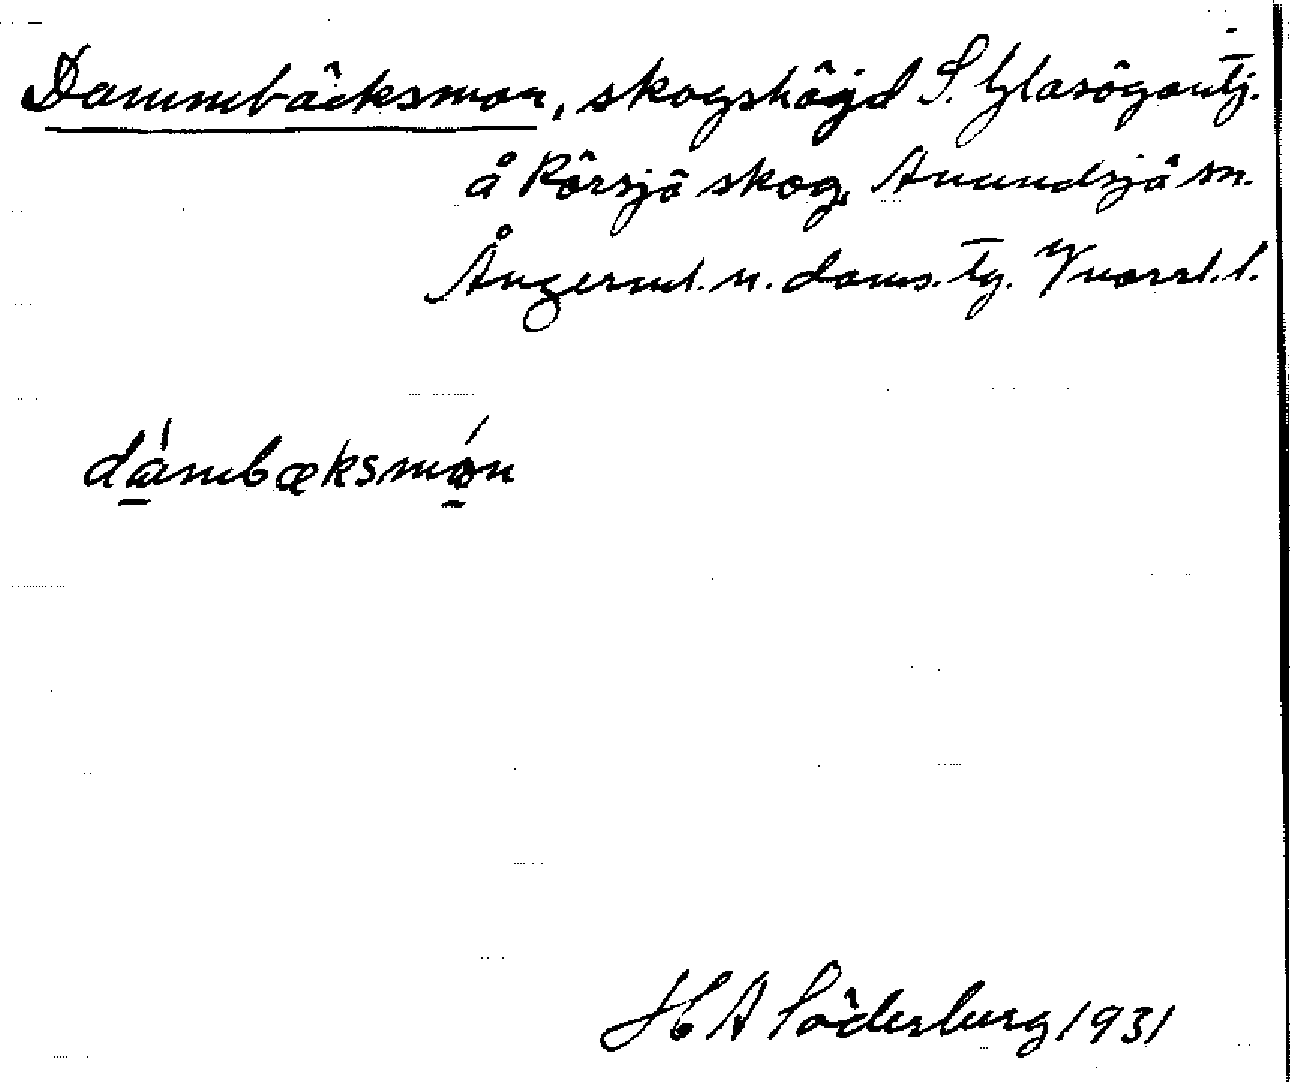 Dammbäcksmon, skogshöjd S. Glasögontj.
å Rörsjö skog, Anundsjö sn.
Ångerml. n. doms. tg. Y norrl. l.
dámbæksmón
H A Söderberg 1931